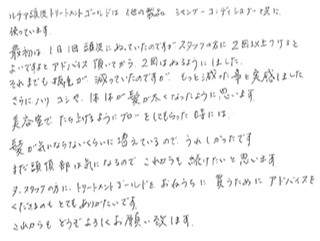 ルチア頭浸トリートメントゴールドは、他の製品 シャンプー・コンディショナーと共に
使っています。
最初は、1日1回頭皮にぬっていたのですが、スタッフの方に 2回以上つけると
よいですよとアドバイス頂いてから、2回はぬるようにしました。
それまでも抜毛が減っていたのですが、もっと減った事を実感しました
さらに、ハリ コシや、1本1本が髪が太くなったように思います。
美容室で、たち上げるようにブローをしてもらった時には、
髪が気にならないくらいに増えているので、うれしかったです
まだ頭頂部は気になるので これからも続けたいと思います
スタッフの方に、トリートメントゴールドを おねうちに 買うために アドバイスを
くださるのも とてもありがたいです。
これからも どうぞよろしくお願い致します。